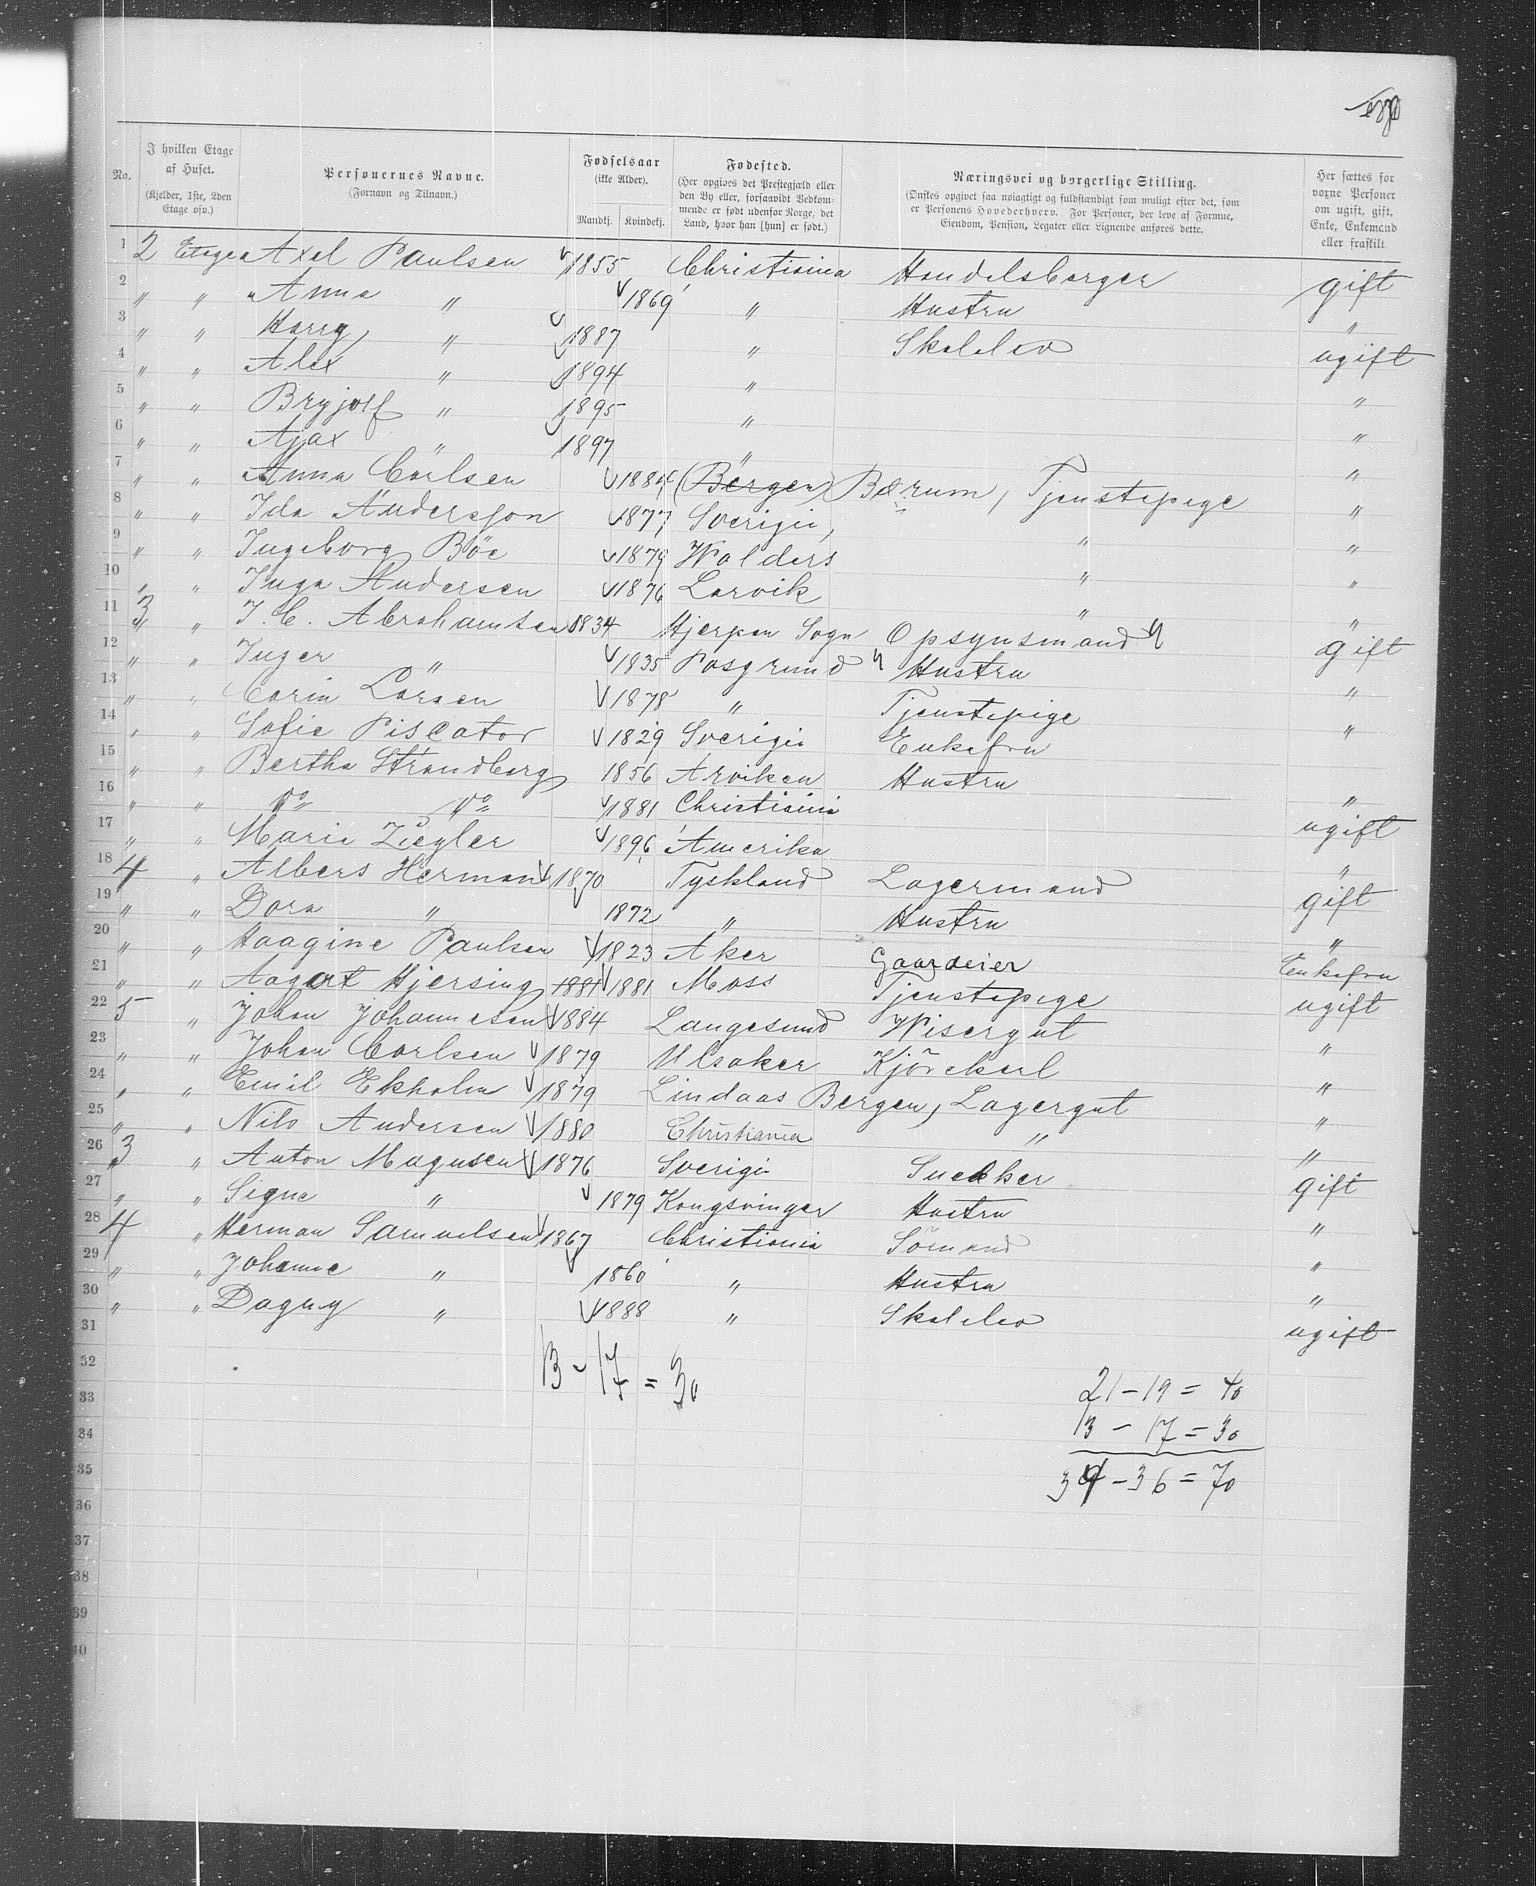 No. I hvilken Etage af Huset. (Kjelder, 1ste, 2den Etage osv.) Personernes Navne. (Fornavn og Tilnavn.) Fødselsaar (ikke Alder). Mandkj. Kvindekj. Fødested. (Her opgives det Prestegjæld eller den By eller, forsaavidt Vedkommende er født udenfor Norge, det Land, hvor han [hun] er født.) Næringsvei og borgerlige Stilling. (Ønskes opgivet saa nøiagtigt og fuldstændigt som muligt efter det, som er Personens Hovederhverv. For Personer, der leve af Formue, Eiendom, Pension, Legater eller Lignende anføres dette. Her sættes for voxne Personer om ugift, gift, Enke, Enkemand eller fraskilt
1 2 Etage Axel Paulsen 1855 Christiania Handelsborger gift
2 " " Anna " 1869 " Hustru "
3 " " Harry " 1887 " Skoleelev ugift
4 " " Alex " 1894 " "
5 " " Bryjolf " 1895 " "
6 " " Ajax " 1897 " "
7 " " Anna Carlsen 1884 (Bergen) Bærum, Tjenstepige "
8 " " Ida Andersson 1877 Sverige, " "
9 " " Ingeborg Böe 1879 Walders " "
10 " " Inga Andersen 1876 Larvik " "
11 3 " J. C. Abrahamsen 1834 Hjerpen Sogn Opsynsmand gift
12 " " Inger " 1835 Posgrund Hustru "
13 " " Carin Larsen 1878 " Tjenstepige "
14 " " Sofie Piscator 1829 Sverige Enkefru
15 " " Bertha Strandberg 1856 Arviken Hustru "
16 " " Do Do 1881 Christiania ugift
17 " " Marie Ziegler 1896 Amerika "
18 4 " Albers Herman 1870 Tyskland Lagermand gift
19 " " Dora " 1872 " Hustru "
20 " " Haagine Paulsen 1823 Aker Gaardeier Enkefru
21 " " Aagart Hjersing 1881 1881 Moss Tjenstepige ugift
22 5 " Johan Johannesen 1884 Langesund Wisergut "
23 " " Johan Carlsen 1879 Ulsaker Kjörekarl "
24 " " Emil Ekholm 1879 Lindaas Bergen, Lagergut "
25 " " Nils Andersen 1880 Christiania " "
26 3 " Anton Magnusen 1876 Sverige Snekker gift
27 " " Signe " 1879 Kongsvinger Hustru "
28 4 " Herman Samuelsen 1867 Christiania Sömand "
29 " " Johanne " 1860 " Hustru "
30 " " Dagny " 1888 " Skoleelev ugift
31
32 13 - 17 = 30
33 21 - 19 = 40
34 13 - 17 = 30
35 34 - 36 = 70
36
37
38
39
40